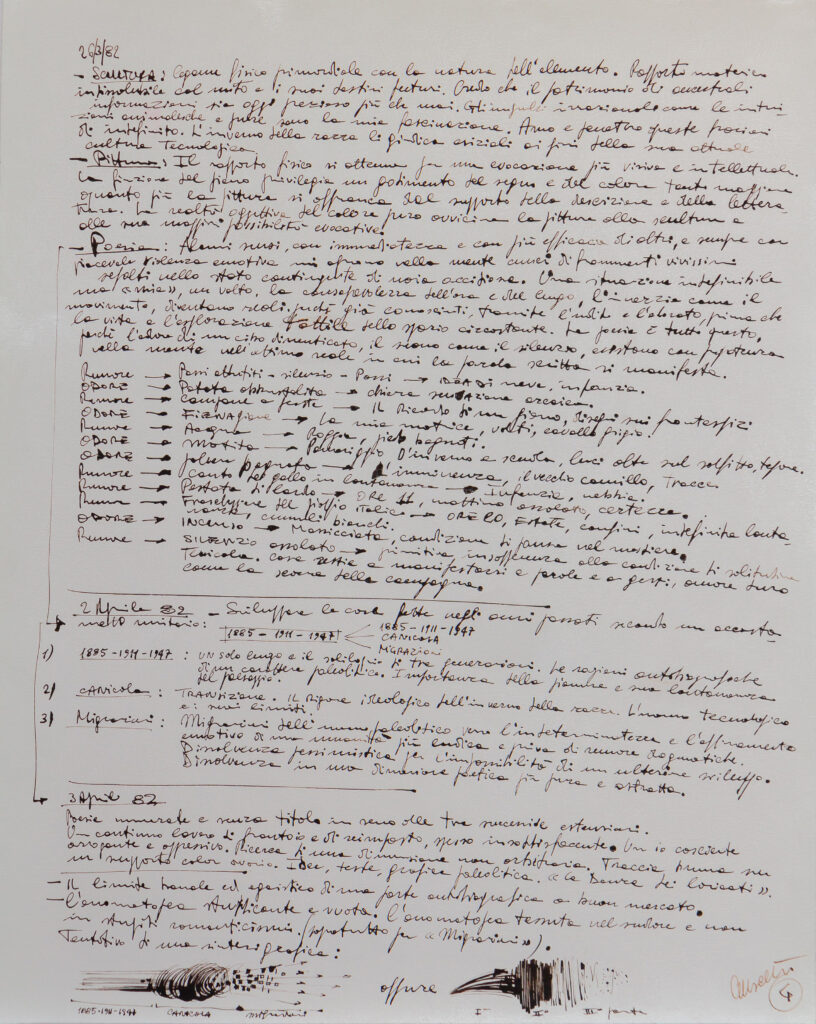 26/3/82
- Scultura: Legame fisico primordiale con la natura dell'elemento. Rapporto materico
indissolubile col mito e i suoi destini futuri. Credo che il patrimonio di ancestrali
informazioni sia oggi prezioso più che mai. Gli impulsi irrazionali come le intui-
zioni animalesche e pure sono la mia fascinazione. Amo e questo queste frazioni
di indefinito. L'inverno della razza li giudica ai fini della sua attuale
cultura Tecnologica
- Pittura: Il rapporto fisico si attenua per una evocazione più visiva e intellettuale.
La funzione del piano privilegia un godimento del segno e del colore tanto maggiore
quanto più la pittura si affranca dal supporto della descrizione e della lettera-
tura. La realtà oggettiva del colore puro avvicina la pittura alla scultura e
alle sue maggiori possibilità evocative.
- Poesia: Alcuni sensi, con immediatezza e con più efficacia di altri, e sempre con
piacevole violenza emotiva mi aprono nella mente di frammenti vivissimi
sepolti nello stato contingente di noia accidiosa. Una situazione indefinibile
ma «mia», un volto, la consapevolezza dell'ora e del luogo, l'inerzia come il
movimento, diventano reali perché già conosciuti, tramite l'udito e l'olfatto, prima che
la vista e l'esplorazione Tattile dello spazio circostante. La poesia è tutto questo,
perché l'odore di un cibo dimenticato, il suono come il silenzio, esistono con prepotenza
nella mente nell'attimo reale in cui la parola scritta si manifesta.
Rumore → Passi attutiti - silenzio - Passi → IDEA DI neve, infanzia.
ODORE → Patata abbrustolita → chiara sensazione arcaica.
Rumore → campane a feste → Il Ricordo di un piano, disegni sui frontespizi
ODORE → FIENAgione → La mia matrice, volti, cavallo grigio.
Rumore → Acqua → Roggia, piedi bagnati.
ODORE → Matita → Pomeriggio D'inverno a scuola, luci alte sul soffitto, tepore.
ODORE → polvere bagnata → L'imminenza, il vecchio camillo, Tracce
Rumore → Canto del gallo in lontananza → Infanzia, nebbia.
Rumore → Pestata di lardo → ORE 11, mattino assolato, certezza.
Rumore → Frascheggiare del pioppo italico → ORE 20, Estate, confini, indefinita lonta-
nanza, cumuli bianchi.
ODORE → INCENSO → Massicciata, condizione di pausa nel mestiere.
Rumore → SILENZIO assolato → primitiva insofferenza alla condizione di solitudine
Tenicola. cosa restia a manifestarsi a parole e a gesti, amore duro
come la scorza della campagna.
2 Aprile 82 - Sviluppare le cose fatte negli anni passati secondo un accosta-
mento unitario: 1885-1911-1947
1885-1911-1947
CANICOLA
MIGRAZIONI
1) 1885-1911-1947: UN solo luogo e il soliloquio di tre generazioni. Le ragioni autobiografiche
di un carattere paleolitico. Importanza della pianura e sua lontananza
del paesaggio.
2) CANICOLA: TRANSIZIONE. Il Rigore ideologico dell'inverno della razza. L'uomo tecnologico
e i suoi limiti
3) Migrazioni: Migrazioni dell'uomo paleolitico verso l'indeterminatezza e l'affinamento
emotivo di una umanità più ludica e priva di remore dogmatiche.
Dissolvenza pessimistica per l'impossibilità di un ulteriore sviluppo.
Dissolvenza in una dimensione poetica più pura e astratta.
3 Aprile 82
Poesie numerate e senza titolo in seno alle tre successive estensioni.
Un continuo lavoro di frantoio e di reimpasto, spesso insoddisfacente. Un io cosciente
arrogante e oppressivo. Ricerca di una dimensione non arbitraria. Traccia bruna su
un supporto color avorio. Idee, teste, grafica paleolitica. «La Danza dei loricati».
- Il limite banale ed egoistico di una parte autobiografica a buon mercato.
- L'onomatopea stupificante e vuota. L'onomatopea tessuta nel sudore e non
in stupiti romanticismi. (soprattutto per «Migrazioni»).
Tentativo di una sintesi grafica:
oppure
1885-1911-1947 CANICOLA migrazioni
I° II° III° parte
4